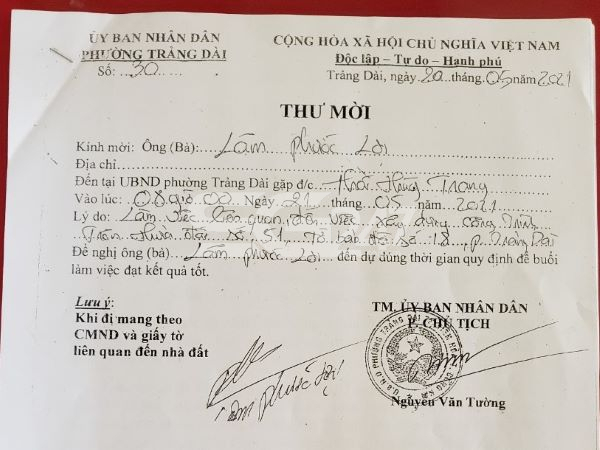 ỦY BAN NHÂN DÂN
PHƯỜNG TRẢNG DÀI
Số: ...30...
CỘNG HÒA XÃ HỘI CHỦ NGHĨA VIỆT NAM
Độc lập – Tự do – Hạnh phú
Trảng Dài, ngày 20 tháng 05 năm 2021
THƯ MỜI
Kính mời: Ông (Bà): Lâm Phước Lợi
Địa chỉ
Đến tại UBND phường Trảng Dài gặp đ/c Trang
Vào lúc: 08 giờ 00 Ngày 21 tháng 05 năm 2021
Lý do: Làm việc liên quan đến việc xây dựng công trình
Trên thửa đất số 51, tờ bản đồ số 18, p. Trảng Dài
Đề nghị ông (bà) Lâm Phước Lợi đến dự đúng thời gian quy định để buổi
làm việc đạt kết quả tốt.
Lưu ý:
Khi đi mang theo
CMND và giấy tờ
liên quan đến nhà đất
Lâm Phước Lợi
TM. ỦY BAN NHÂN DÂN
P. CHỦ TỊCH
Nguyễn Văn Tường